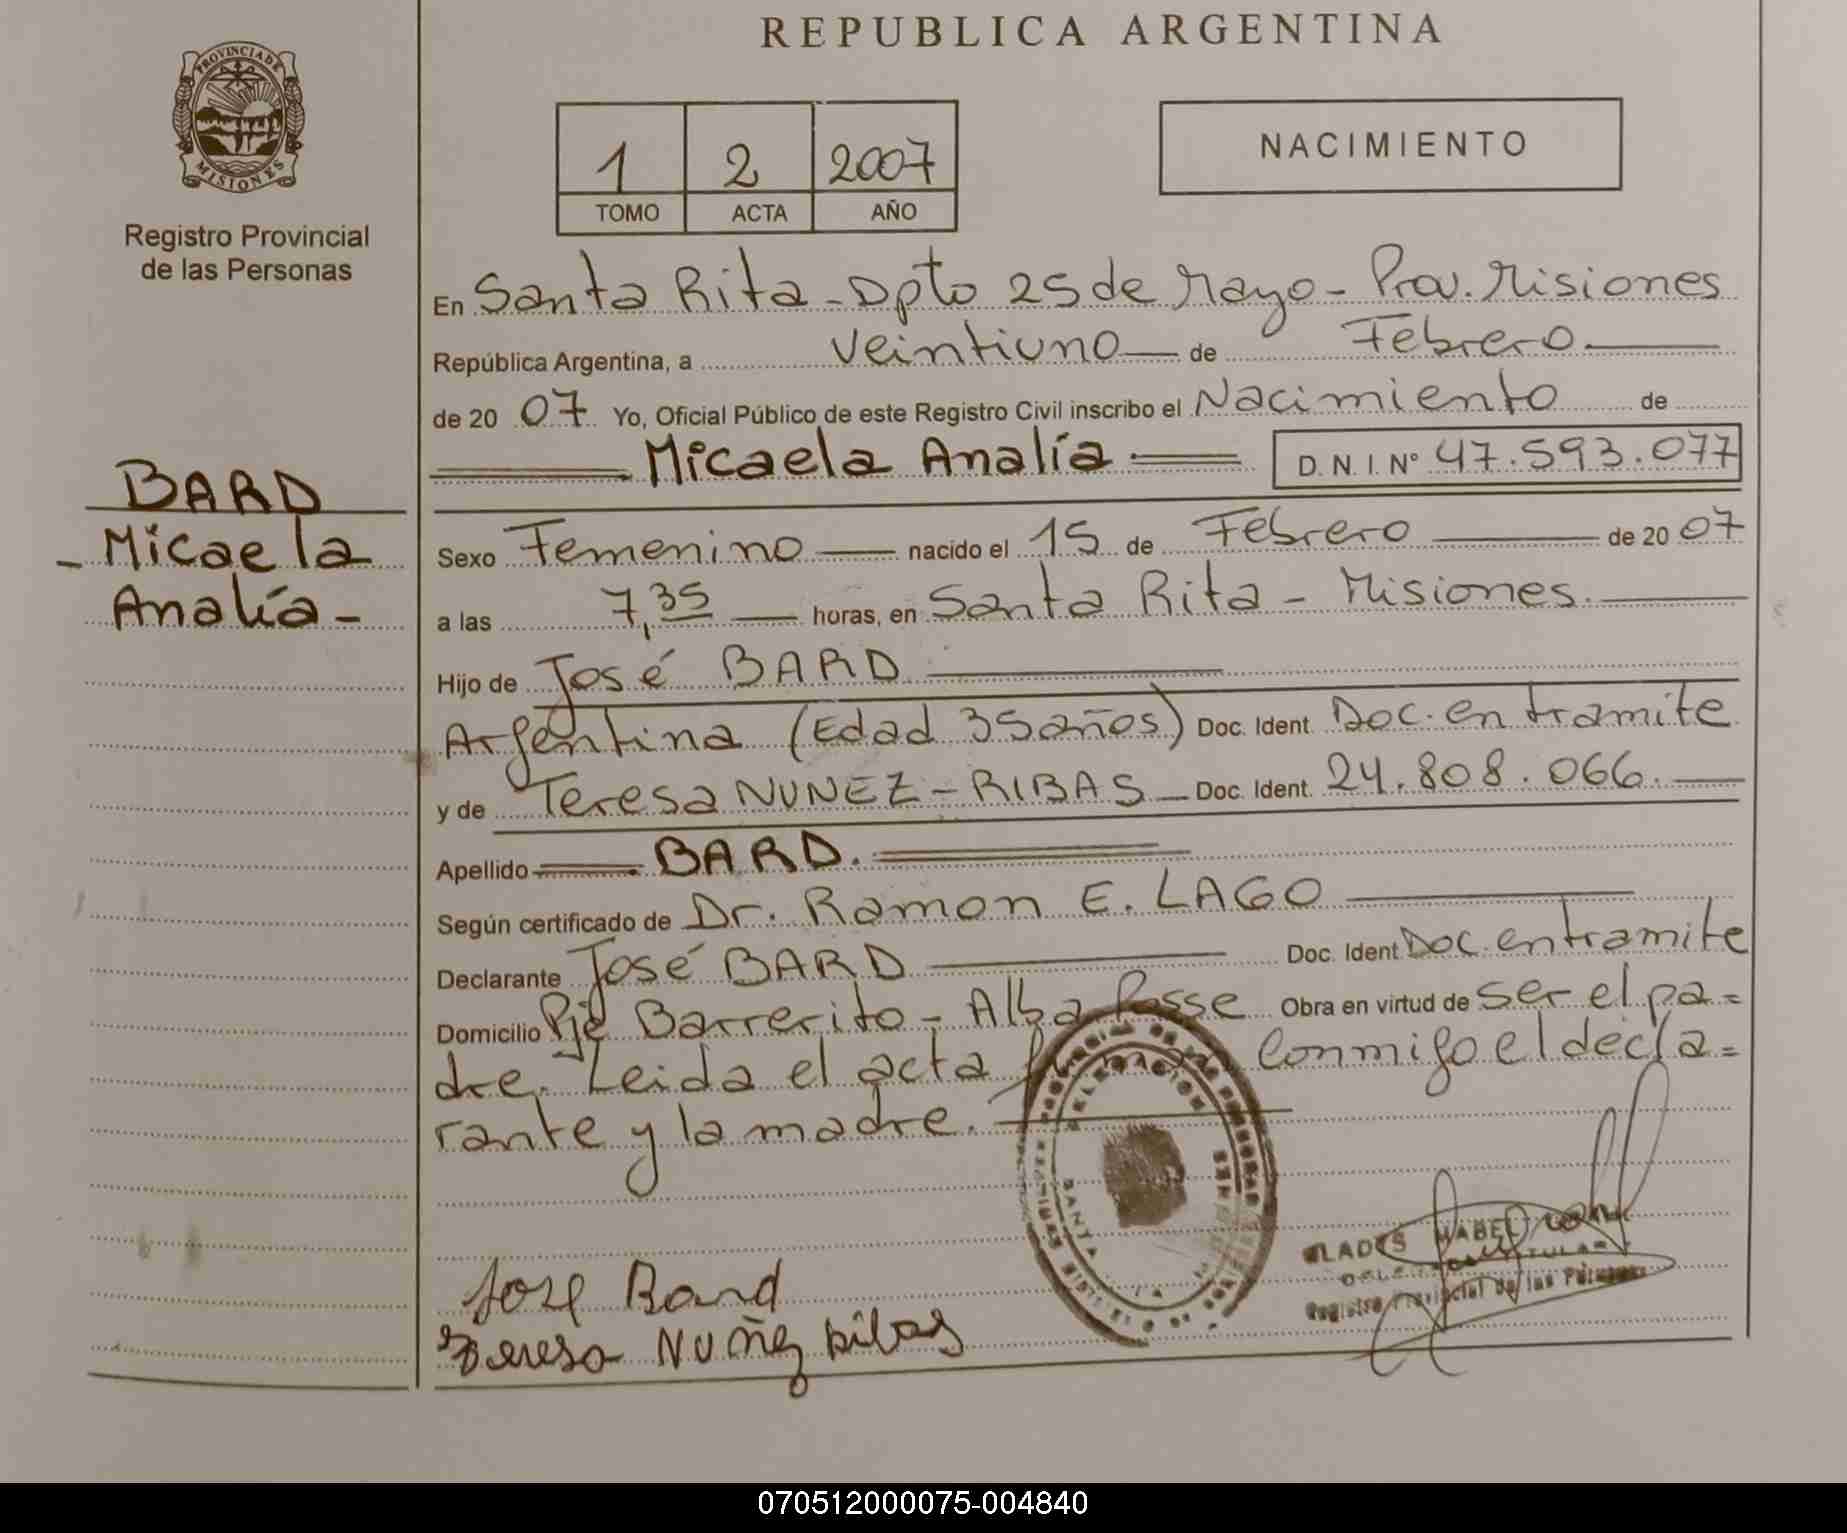 REPUBLICA ARGENTINA
PROVINCIA DE
MISIONES
Registro Provincial
de las Personas
1 2 2007
TOMO ACTA AÑO
NACIMIENTO
En Santa Rita - Dpto 25 de Mayo - Prov. Misiones
República Argentina, a Veintiuno de Febrero
de 2007 Yo, Oficial Público de este Registro Civil inscribo el Nacimiento de
Micaela Analía D. N. I. Nº 47.593.077
BARD
- Micaela
Analía -
Sexo Femenino nacido el 15 de Febrero de 2007
a las 7,35 horas, en Santa Rita - Misiones.
Hijo de José BARD
Argentina (Edad 35 años) Doc. Ident. Doc. en tramite
y de Teresa NUNEZ - RIBAS Doc. Ident. 24.808.066.
Apellido BARD.
Según certificado de Dr. Ramon E. LAGO
Declarante José BARD Doc. Ident. Doc. en tramite
Domicilio Pje Barrerito - Alba Posse Obra en virtud de ser el pa=
dre. Leida el acta conmigo el decla=
rante y la madre.
SANTA
Jose Bard
Teresa Nuñez Ribas
GLADYS MABEL
TITULAR
Registro Provincial de las Personas
070512000075-004840